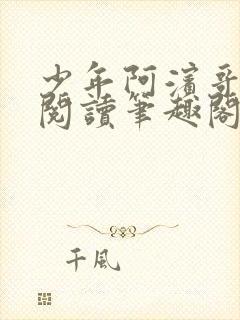 少年阿濱哥
閱讀筆趣閣
千風